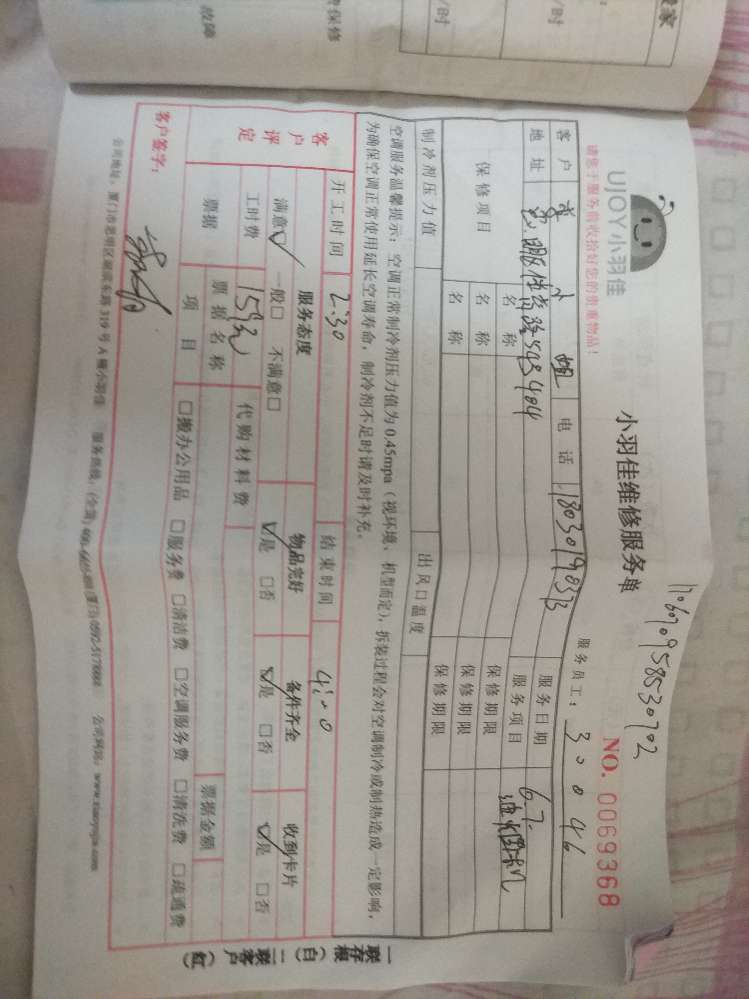 搬家
/时
/时
费保修
故障
1706070958530702
UJOY小羽佳
小羽佳维修服务单
NO. 0069368
请您于服务前收拾好您的贵重物品！
服务员工：30046
客户 小姐 电话 18030190833 服务日期 6.7.
地址 服务项目
保修项目 名称 保修期限
名称 保修期限
名称 保修期限
制冷剂压力值 出风口温度
空调服务温馨提示：空调正常制冷剂压力值为0.45mpa（视环境、机型而定），拆装过程会对空调制冷或制热造成一定影响，
为确保空调正常使用延长空调寿命，制冷剂不足时请及时补充。
开工时间 2:30 结束时间 4:00
客户评定 服务态度 物品完好 备件齐全 收到卡片
满意☑ 一般□ 不满意□ ☑是 □否 ☑是 □否 ☑是 □否
工时费 159元 代购材料费
票据 票据名称 票据金额
项目 □搬办公用品 □服务费 □清洁费 □空调服务费 □清洗费 □疏通费
客户签字：
公司地址：厦门市思明区湖滨东路319号A幢小羽佳 服务热线：(全国) (厦门) 0592-5178888 公司网站：www.xiaoyujia.com
一联存根（白）二联客户（红）